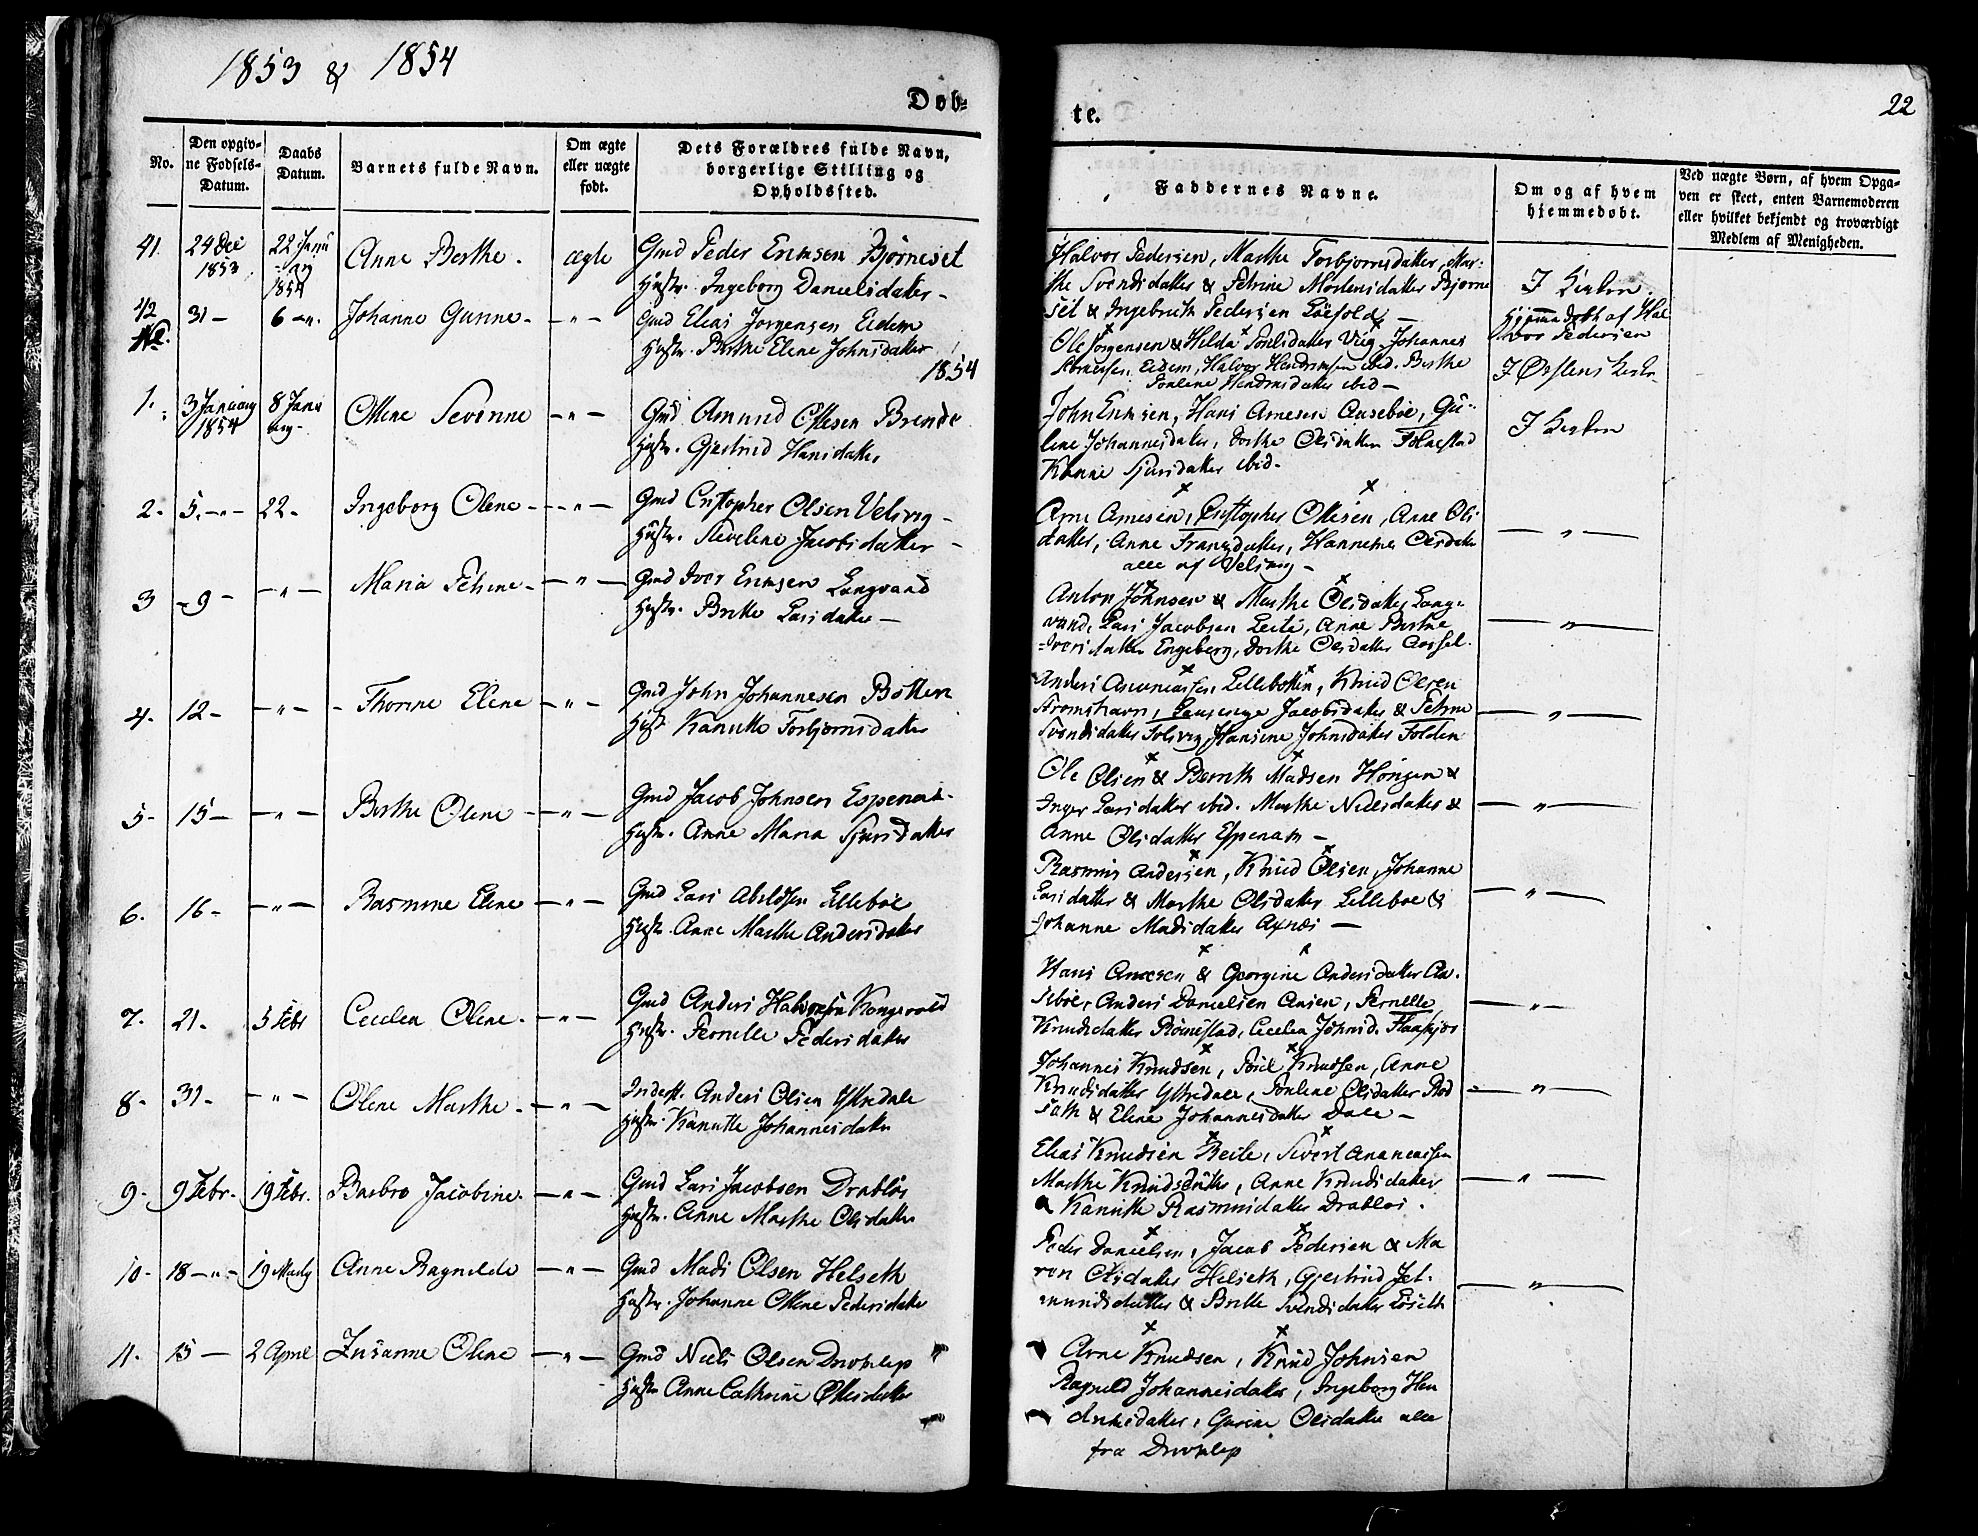 1853 & 1854
Døb-
te.
22
No.
Den opgiv-
ne Fødsels-
Datum.
Daabs
Datum.
Barnets fulde Navn.
Om ægte
eller uægte
født.
Dets Forældres fulde Navn,
borgerlige Stilling og
Opholdssted.
Faddernes Navne.
Om og af hvem
hjemmedøbt.
Ved uægte Børn, af hvem Opga-
ven er skeet, enten Barnemoderen
eller hvilket bekjendt og troværdigt
Medlem af Menigheden.
41. 24 Dec 1853 22 Janu-ar 1854 Anne Berthe. ægte Gmd Peder Ericksen Bjørneset
Hustr. Ingeborg Danielsdatter
Halvor Pedersen, Marthe Torbjørnsdatter, Mar-
the Svendsdatter & Petrine Mortensdatter Bjørne
set & Ingebrith Pedersen
I Kirken.
42 31 — 6 — Johanne Gurine — " — Gmd Elias Jørgensen Eidem
Hustr. Berthe Eline Johnsdatter
Ole Jørgensen & Hilda Poulsdatter Viig, Johannes
Eidem, Halvor Hendriksen ibid. Berthe
Pouline Hendriksdatter ibid —
Hjemmedøbt af Hal
vor Pedersen
I Ørstens Kirke
1854
1. 3 January 1854 8 Janu ary Oline Severine — " — Gmd Amund Ottesen Brende
Hustr. Gjertrud Hansdatter
John Ericksen, Hans Arnesen Aasebøe, Gu-
line Johannesdatter, Dorthe Olsdatter Folkestad
Sjursdatter ibid.
I Kirken
2. 5. — " — 22. Ingeborg Oline — " — Gmd Cristopher Olsen Velsvig
Hustr. Seveline Jacobsdatter
Arne Arnesen, Cristopher Ottesen, Anne Ols
datter, Anne Franzdatter, Hannette Olsdatter
alle af Velsvig —
— " —
3 9 — — " — Maria Petrine — " — Gmd Iver Ericksen Langvand
Hustr. Brithe Larsdatter —
Anton Johnsen & Marthe Olsdatter Lang-
vand, Lars Jacobsen Leite, Anne Berthe
Iversdatter Engeberg, Dorthe Olsdatter
— " —
4. 12 — — " — Thorine Eline — " — Gmd John Johannesen Botten
Hustr Kanutte Torbjørnsdatter
Anders Ananiassen Lillebotten, Knud Olsen
Strømshavn, Jacobsdatter & Petrine
Svendsdatter Folsvig, Hansine Johnsdatter Folden
— " —
5. 15 — — " — Berthe Oline — " — Gmd Jacob Johnsen Espenæs
Hustr. Anne Maria Sjursdatter
Ole Olsen & Bernth Madsen Høngen &
Inger Larsdatter ibid. Marthe Nielsdatter &
Anne Olsdatter Espenæs —
— " —
6. 16 — — " — Rasmine Eline — " — Gmd Lars Abelsen Lillebøe
Hustr. Anne Marthe Andersdatter
Rasmus Andersen, Knud Olsen, Johanne
Larsdatter & Marthe Olsdatter Lillebøe &
Johanne Madsdatter Axnæs —
— " —
7. 21. 5 Febr Cecilia Oline. — " — Gmd Anders Halvorsen Kongsvold
Hustr. Pernille Pedersdatter
Hans Arnesen & Georgine Andersdatter Aa-
sebøe, Anders Danielsen Aasen, Pernille
Knudsdatter Rømestad, Cecilia Johnsd.
— " —
8. 31. — " — Oline Marthe. — " — Inderst. Anders Olsen Ystedale
Hustr. Kanutte Johannesdatter
Johannes Knudsen, Poul Knudsen, Anne
Knudsdatter Ystedale, Pouline Olsdatter Rod
& Eline Johannesdatter Dale —
— " —
9. 9 Febr. 19 Febr. Barbro Jacobine. — " — Gmd Lars Jacobsen Drabløs
Hustr. Anne Marthe Olsdatter
Elias Knudsen Reite, Sivert Ananiassen
Marthe Knudsdatter, Anne Knudsdatter
& Kanutte Rasmusdatter Drabløs.
— " —
10. 18 — " — 19 Marts Anne Ragnilde — " — Gmd Mads Olsen Helseth
Hustr. Johanne Oline Pedersdatter
Peder Danielsen, Jacob Pedersen & Ma
ren Olsdatter Helseth, Gjertrud Jet-
mundsdatter & Brithe Svendsdatter Løseth
— " —
11. 15 — 2 April Zusanne Oline — " — Gmd Niels Olsen Drotslep
Hustr Anne Cathrine Ottesdatter
Arne Knudsen, Knud Johnsen
Ragnild Johannesdatter, Ingeborg Hen
driksdatter, Gurine Olsdatter alle
fra Drotslep